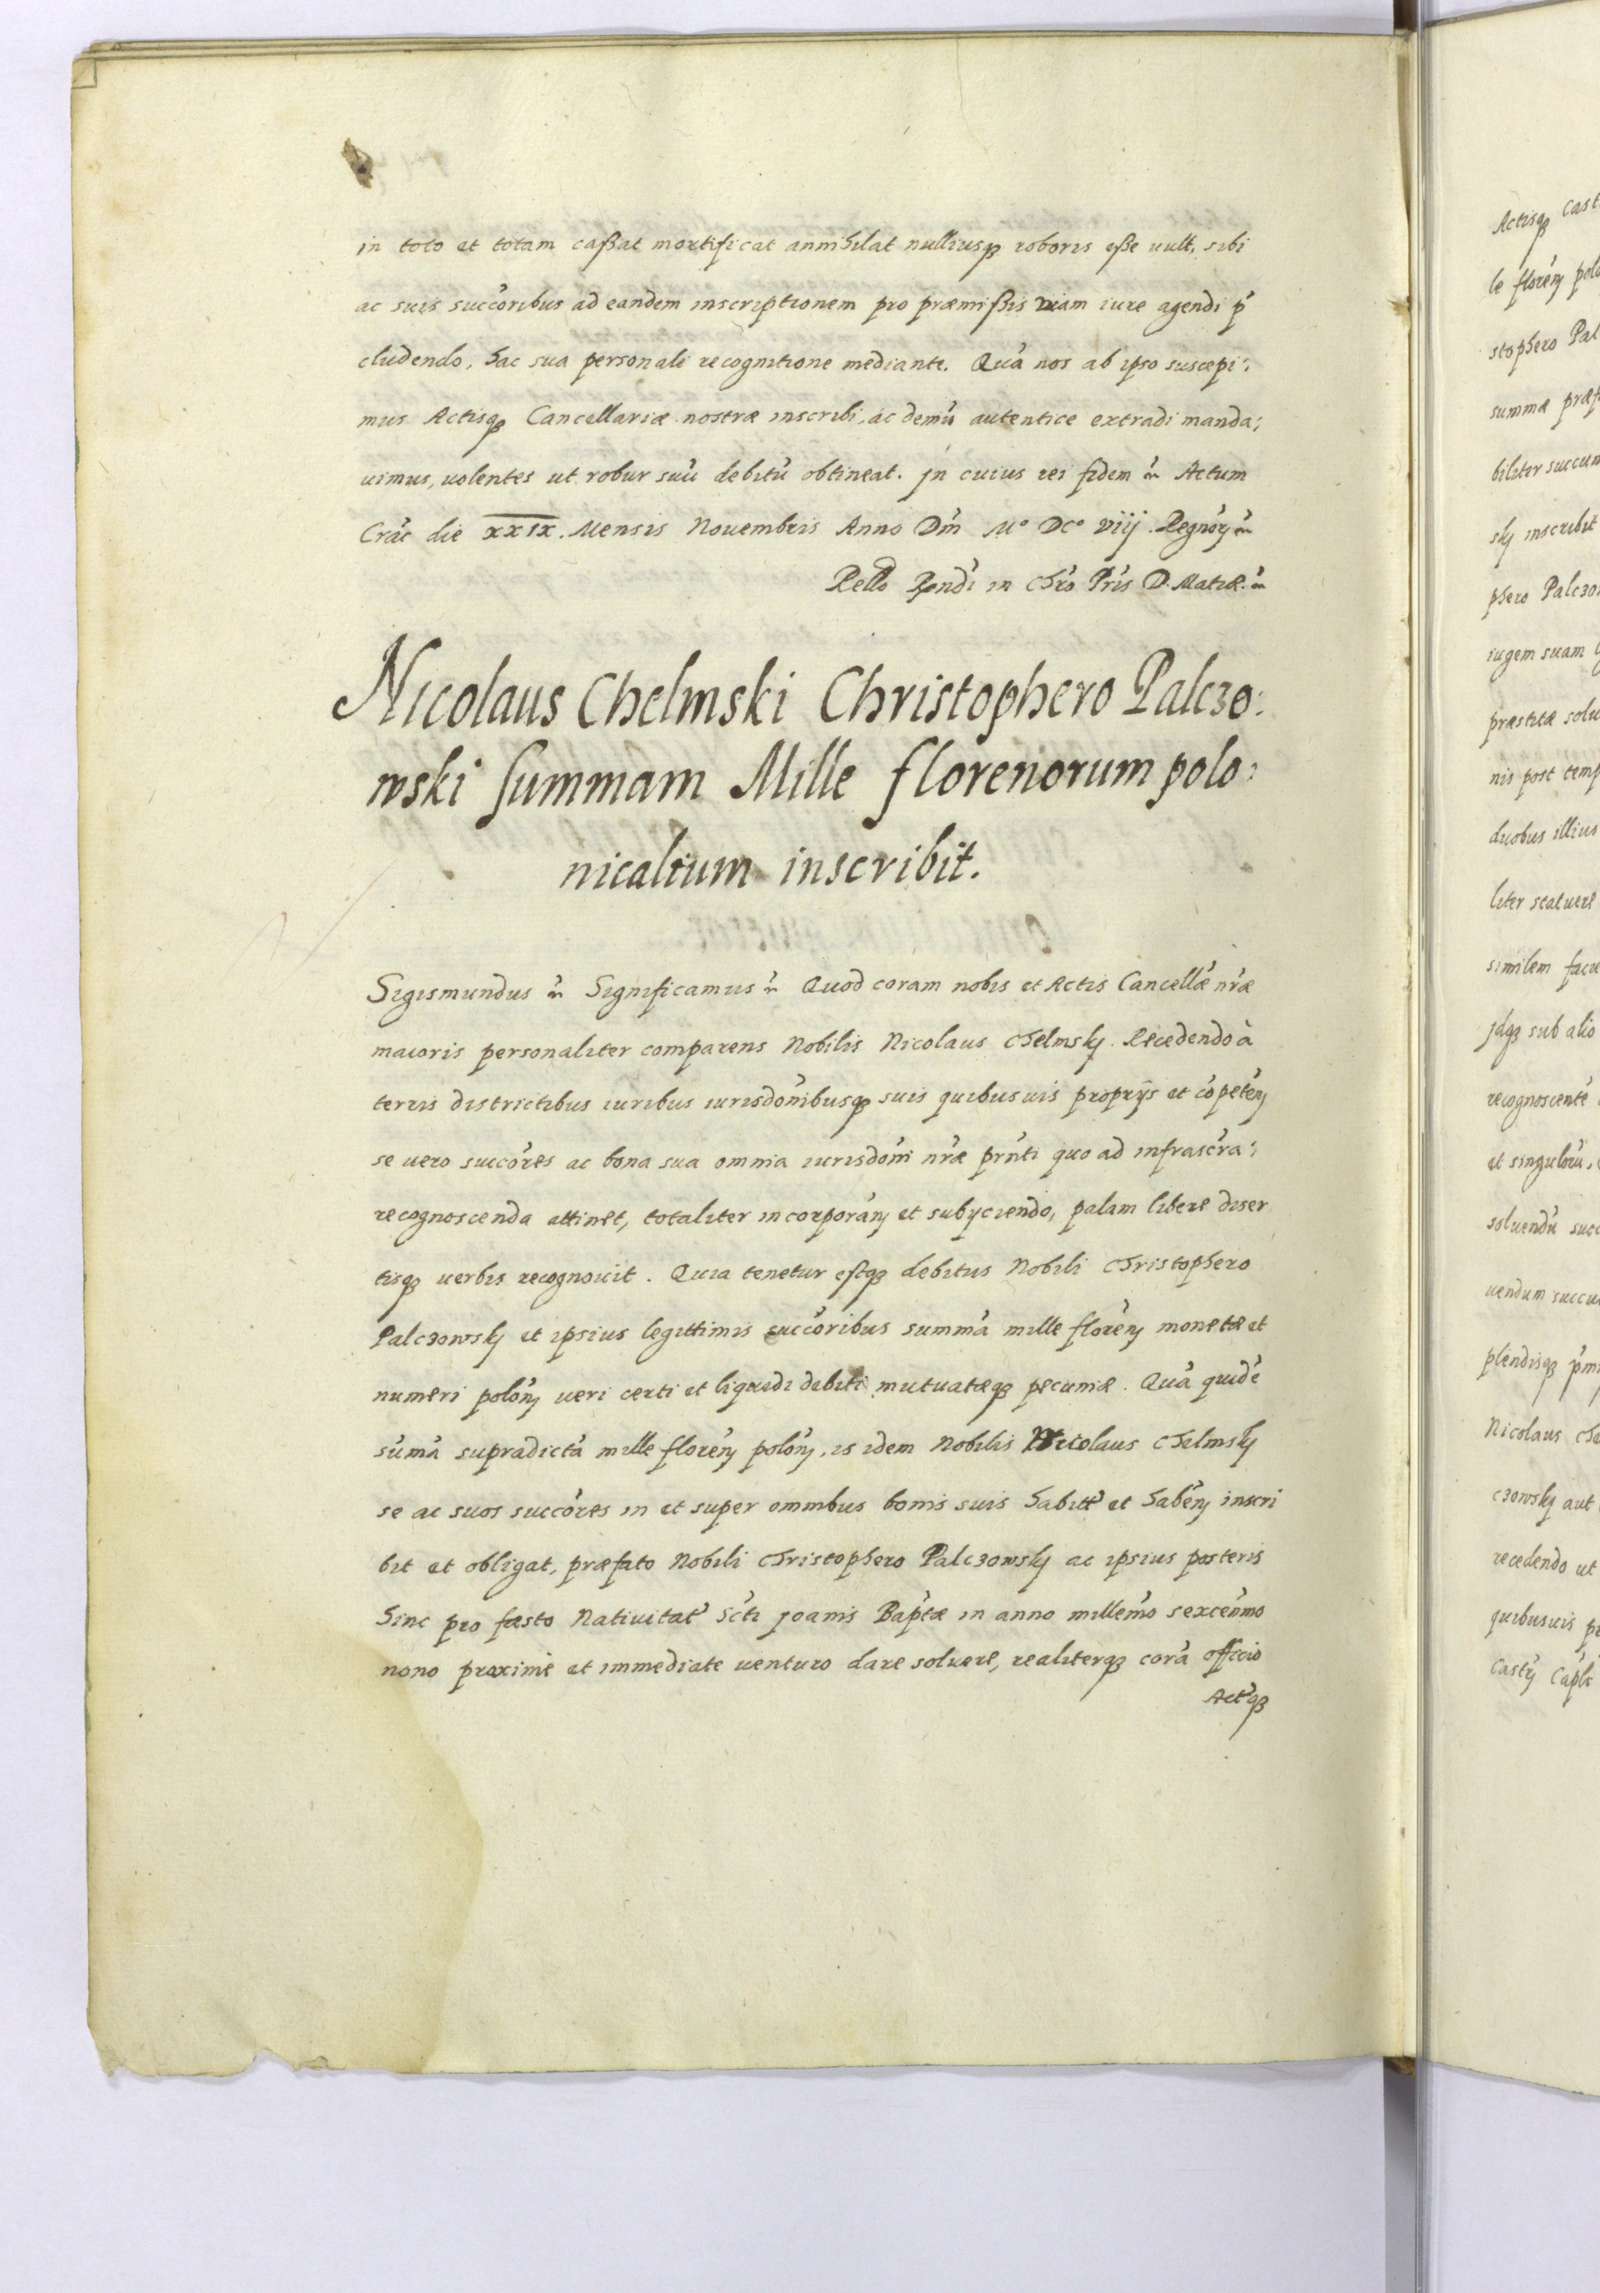 in toto et totam caßat mortificat annihilat nulliusq₃ roboris eße uult, sibi
ac suis succo͂ribus ad eandem inscriptionem pro præmißis viam iure agendi p͂
cludendo, hac sua personali recognitione mediante. Qua͂ nos ab ipso suscepi:
mus Actisq₃ Cancellariæ nostræ inscribi, ac demu͂ autentice extradi manda:
uimus, uolentes ut robur suu͂ debitu͂ obtineat. Jn cuius rei fidem Actum
Cra͂c die XXIX. Mensis Nouembris Anno Dm͂ M° DC° viij. Regnor͂
Rello R͂ondi in Chr͂o Pr͂is D. Matiæ
Nicolaus Chelmski Christophero Palczo:
wski summam Mille florenorum polo:
nicalium inscribit.
Sigismundus Significamus Quod coram nobis et Actis Cancellæ͂ nr͂æ
maioris personaliter comparens Nobilis Nicolaus Chelmsky. Recedendo à
terris districtibus iuribus iurisdo͂nibusq₃ suis quibusuis proprijs et co͂pete͂n
se uero succo͂res ac bona sua omnia iurisdo͂ni nr͂æ prn͂ti quo ad infrascr͂a:
recognoscenda attinet, totaliter incorpora͂n et subijciendo, palam libere diser
tisq₃ uerbis recognouit. Quia tenetur estq₃ debitus Nobili Christophero
Palczowsky et ipsius legittimis succo͂ribus summa͂ mille flore͂n monetæ et
numeri polo͂n ueri certi et liquidi debiti mutuatæq₃ pecuniæ. Qua͂ quide͂
su͂ma͂ supradicta͂ mille flore͂n polo͂n, is idem Nobilis Nicolaus Chelmsky
se ac suos succo͂res in et super omnibus bonis suis habitt͂ et habe͂n inscri
bit et obligat, præfato Nobili Christophero Palczowsky ac ipsius posteris
hinc pro fæsto Natiuitat͂ Sc͂ti Joanis Bap͂tæ in anno mille͂mo sexce͂nmo
nono proximè et immediate uenturo dare soluere, realiterq₃ cora͂ officio
Act͂q₃
Actisq₃ Cast
le flore͂n polo
stophero Pal
summæ præf
biliter succum
sky inscribit
phero Palczo
iugem suam
præstitæ solu
nis post temp
duobus illius
liter statuere
similem facie
Jdq₃ sub alio
recognoscente͂
et singuloru͂,
soluendu͂ succ
uendum succu
plendisq₃ p͂mi
Nicolaus Che
czowsky aut
recedendo ut
quibusuis pr
Castr͂ Cap͂l